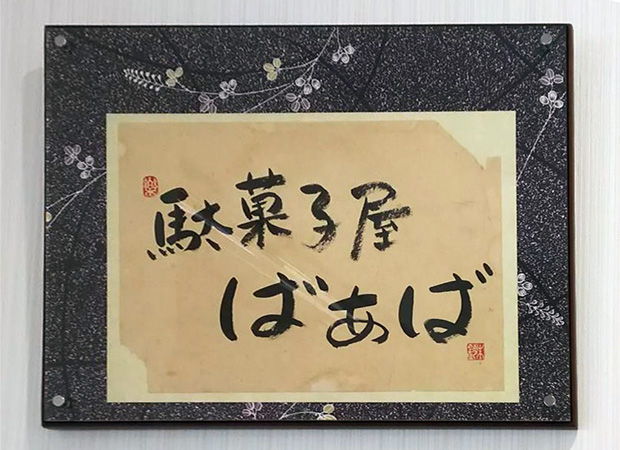 駄菓子屋
ばあば